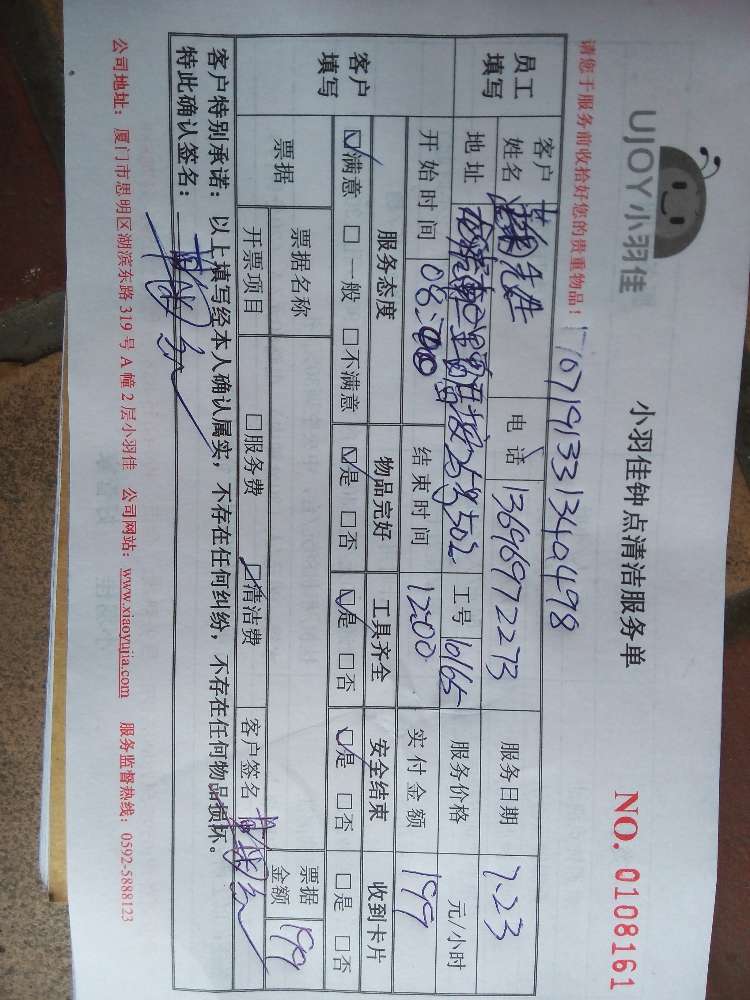 UJOY小羽佳
小羽佳钟点清洁服务单
NO. 0108161
请您于服务前收拾好您的贵重物品！
1707191331340498
员工填写
客户姓名 先生 电话 13696972273 服务日期 7.23
地址 25号502 工号 10165 服务价格 元/小时
开始时间 08:00 结束时间 12:00 实付金额 199
客户填写
服务态度 物品完好 工具齐全 安全结束 收到卡片
☑满意 □一般 □不满意 ☑是 □否 ☑是 □否 ☑是 □否 □是 □否
票据 票据名称 票据金额 199
开票项目 □服务费 ☑清洁费 客户签名
客户特别承诺：以上填写经本人确认属实，不存在任何纠纷，不存在任何物品损坏。
特此确认签名：
公司地址：厦门市思明区湖滨东路 319 号 A 幢 2 层小羽佳 公司网站：www.xiaoyujia.com 服务监督热线：0592-5888123